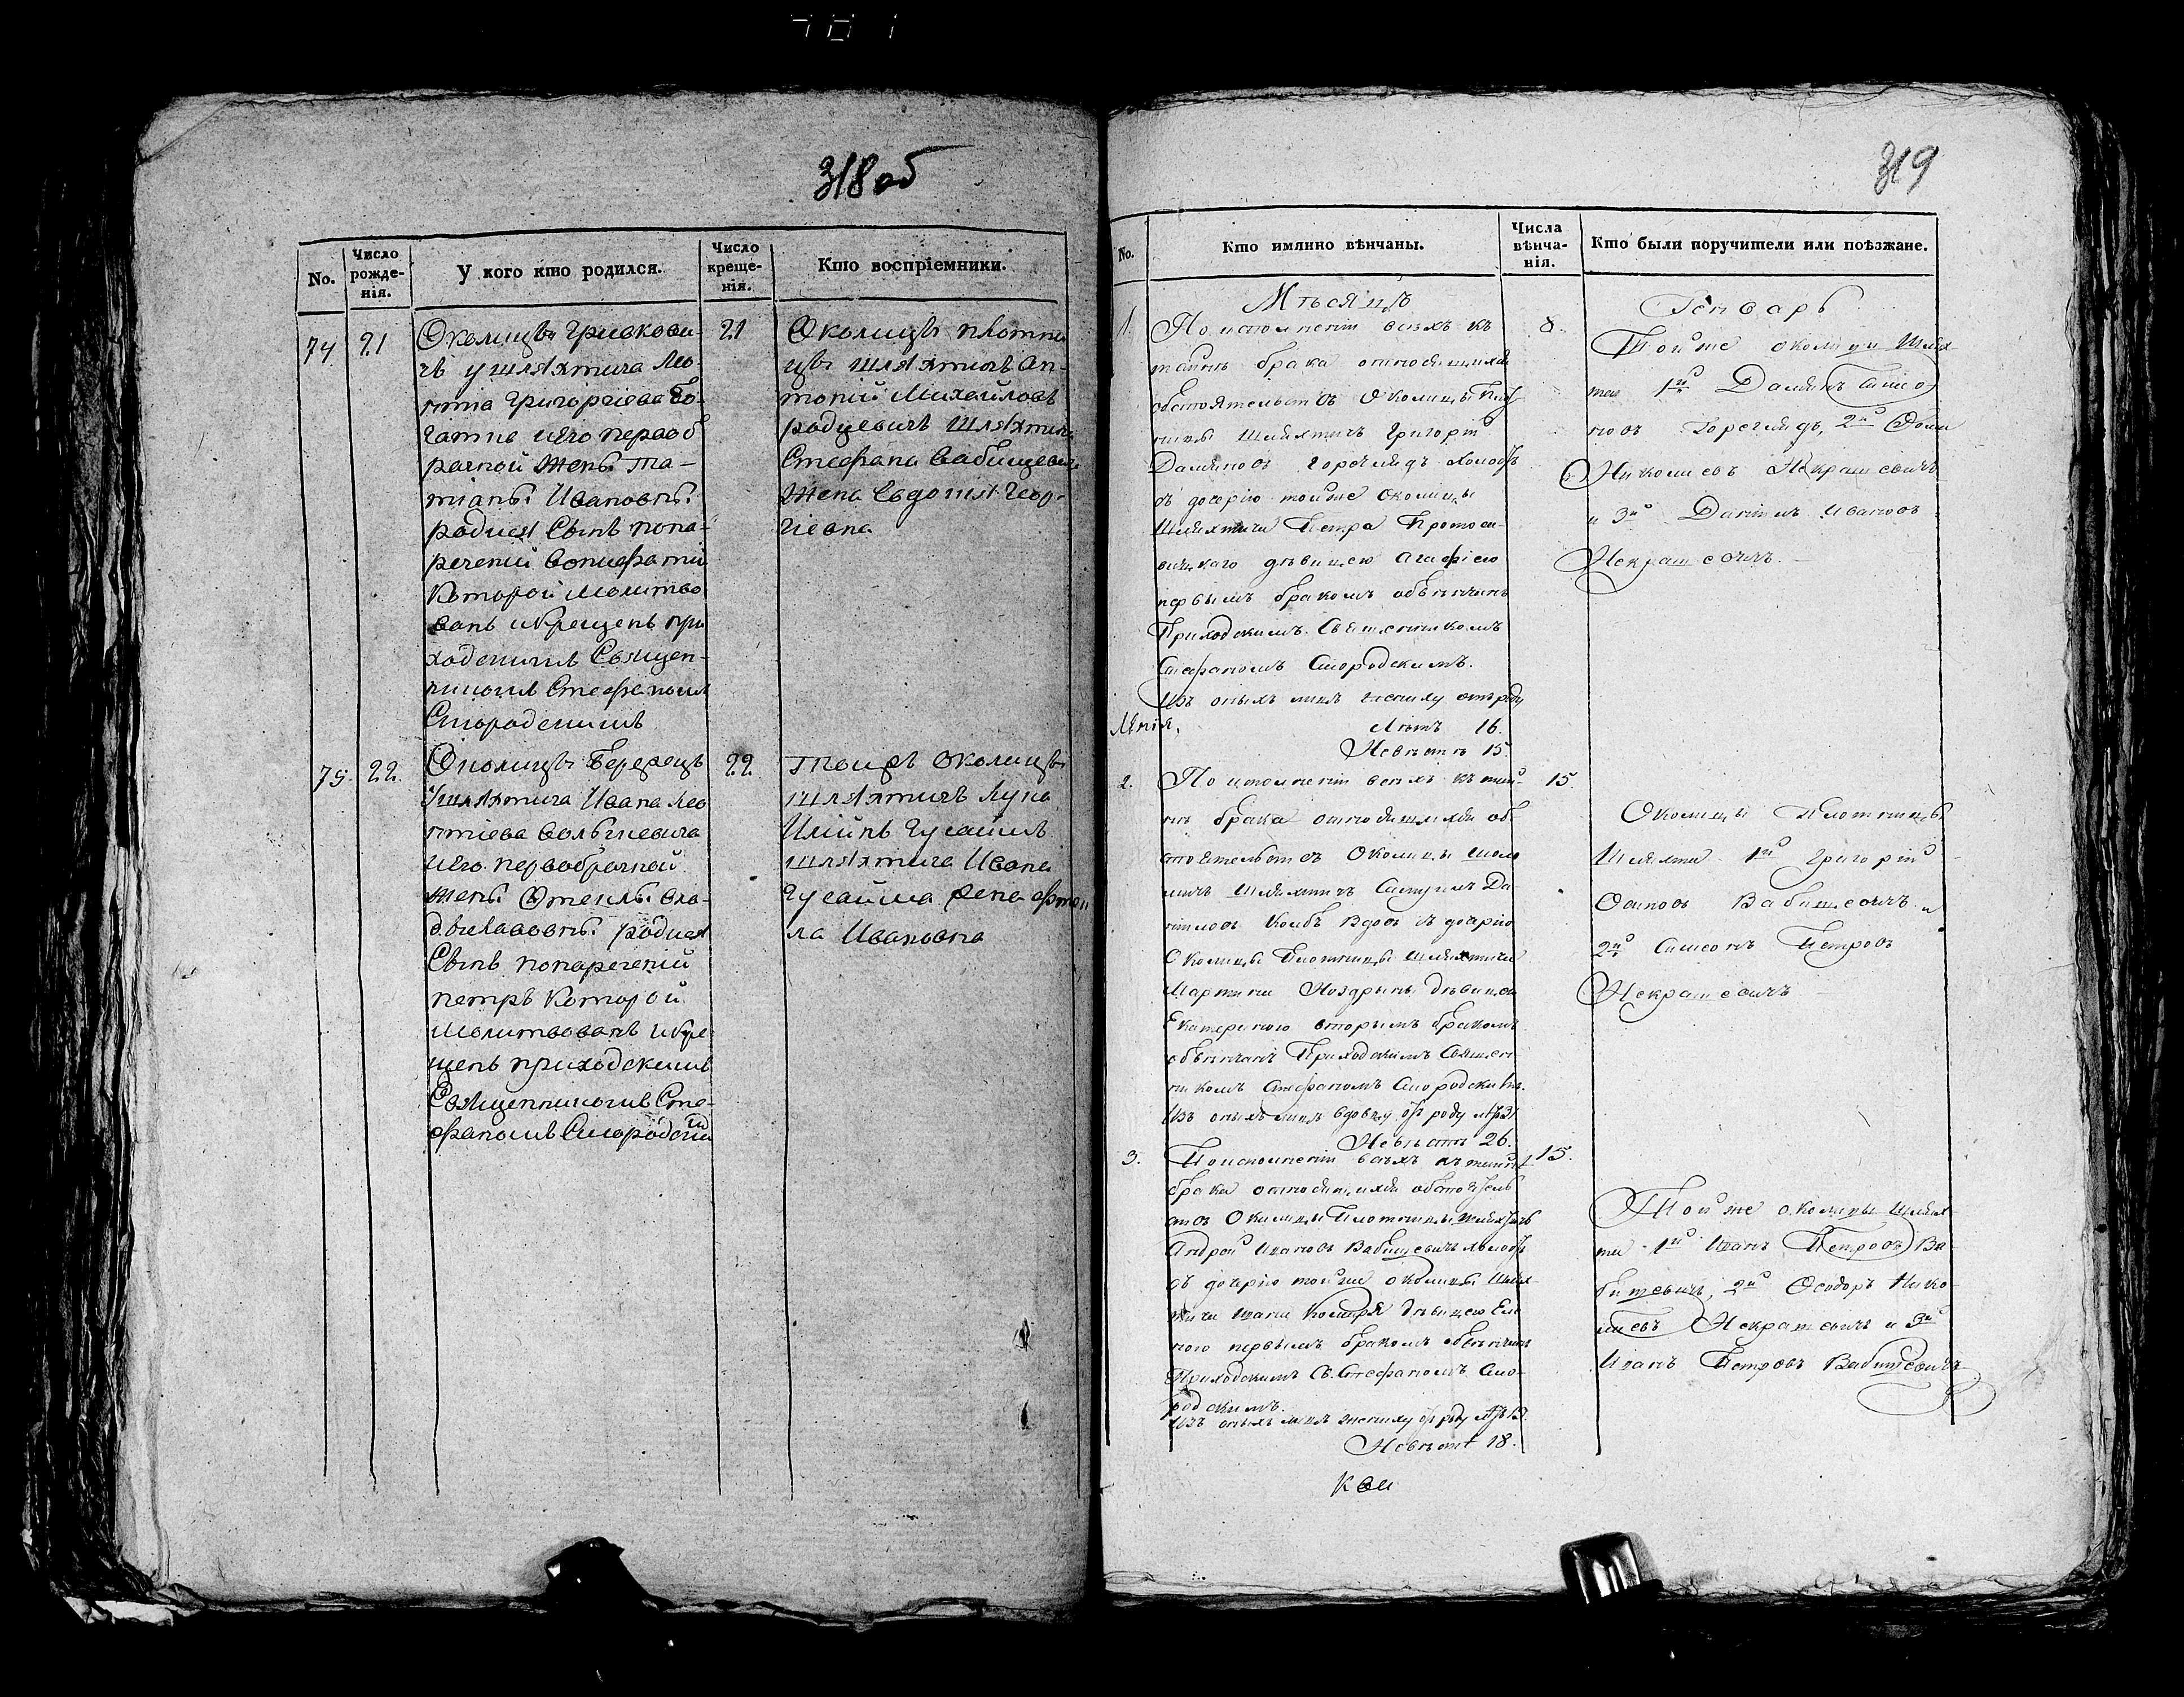 318 об
No.
Число рожде-
нія.
У кого кто родился.
Число креще-
нія.
Кто воспріемники.
74 21
Околицы Гривкови-
чъ у шляхтича Лео-
нтіа Григоріева Бо-
гатпе и его первоб-
рачной жены Та-
тіаны Ивановны
родился Сынъ попа-
реченій Вонифатій
Которой Молитво-
ванъ и крещенъ при-
ходскимъ Священ-
никомъ Стефаномъ
Смородскимъ
21
Околицы плотни-
цы шляхтичъ Ан-
тоній Михайловъ
родцевичъ шляхтича
Стефана Вабищевича
Жена Евдокія Геор-
гіевна
75. 22.
Околицы Бережцъ
Ушляхтича Ивана Лео
нтіева Вольгневича
и его первобрачной
жены Отеклы Вла-
диславовны родился
Сынъ попареченій
петръ Которой
молитвованъ и кре-
щенъ приходскимъ
Священникомъ Сте-
фаномъ Смородским
22
Тоиже Околицы
шляхтичъ Лука
Иліинъ Гусаимъ
шляхтича Ивана
Гусаима жена фтек
ла Ивановна
319
No.
Кто имянно вѣнчаны.
Числа
вѣнча-
нія.
Кто были поручители или поѣзжане.
Мѣсяцъ Генварь
1.
По исполненіи всѣхъ къ
тайнѣ брака относящихся
обстоятельствъ Околицы Плот
ницы Шляхтичъ Григорій
Даміановъ Гореглядъ холост
съ дочерію тойже околицы
Шляхтича Петра Протоси-
вицкаго дѣвицею Агафіею
первымъ бракомъ обвѣнчанъ
Приходскимъ Священникомъ
Стефаномъ Смородскимъ.
Изъ оныхъ лицъ жениху отъ роду
Лѣтъ 16.
Невѣстѣ 15.
8.
Тойже околицы Шлях
ты 1й Даміанъ Симо
новъ Горегляд, 2й Фома
Николаевъ Некрашевичъ
и 3й Даніилъ Ивановъ
Некрашевичъ.
2.
По исполненіи всѣхъ къ тай-
нѣ брака относящихся об-
стоятельствъ Околицы
шляхтичъ Самуилъ Да
ніиловъ Колбъ Вдовъ съ дочерію
Околицы Плотницы шляхтича
Мартина Ноздрынъ дѣвицею
Екатериною вторымъ бракомъ
обвѣнчанъ Приходскимъ Священ
никомъ Стефаномъ Смородскимъ.
Изъ оныхъ лицъ вдовцу отъ роду лѣтъ 31
Невѣстѣ 26.
15.
Околицы Плотницы
Шляхта 1й Григорій
Осиповъ Вабищевичъ и
2й Симеонъ Петровъ
Некрашевичъ
3.
По исполненіи всѣхъ къ тайнѣ
брака относящихся обстоятель
ствъ Околицы Плотницы шляхтичъ
Андрей Ивановъ Вабищевичъ холост
съ дочерію тойже околицы Шлях
тича Ивана Комиря дѣвицею Еле
ною первымъ бракомъ обвѣнчанъ
Приходскимъ Св. Стефаномъ Смо-
родскимъ.
Изъ оныхъ лицъ жениху отъ роду лѣтъ 19.
Невѣстѣ 18.
15.
Тойже околицы Шлях
та 1й Иванъ Петровъ Ва-
бищевичъ, 2й Феодоръ Нико-
лаевъ Некрашевичъ и 3й
Иванъ Петровъ Вабищевичъ